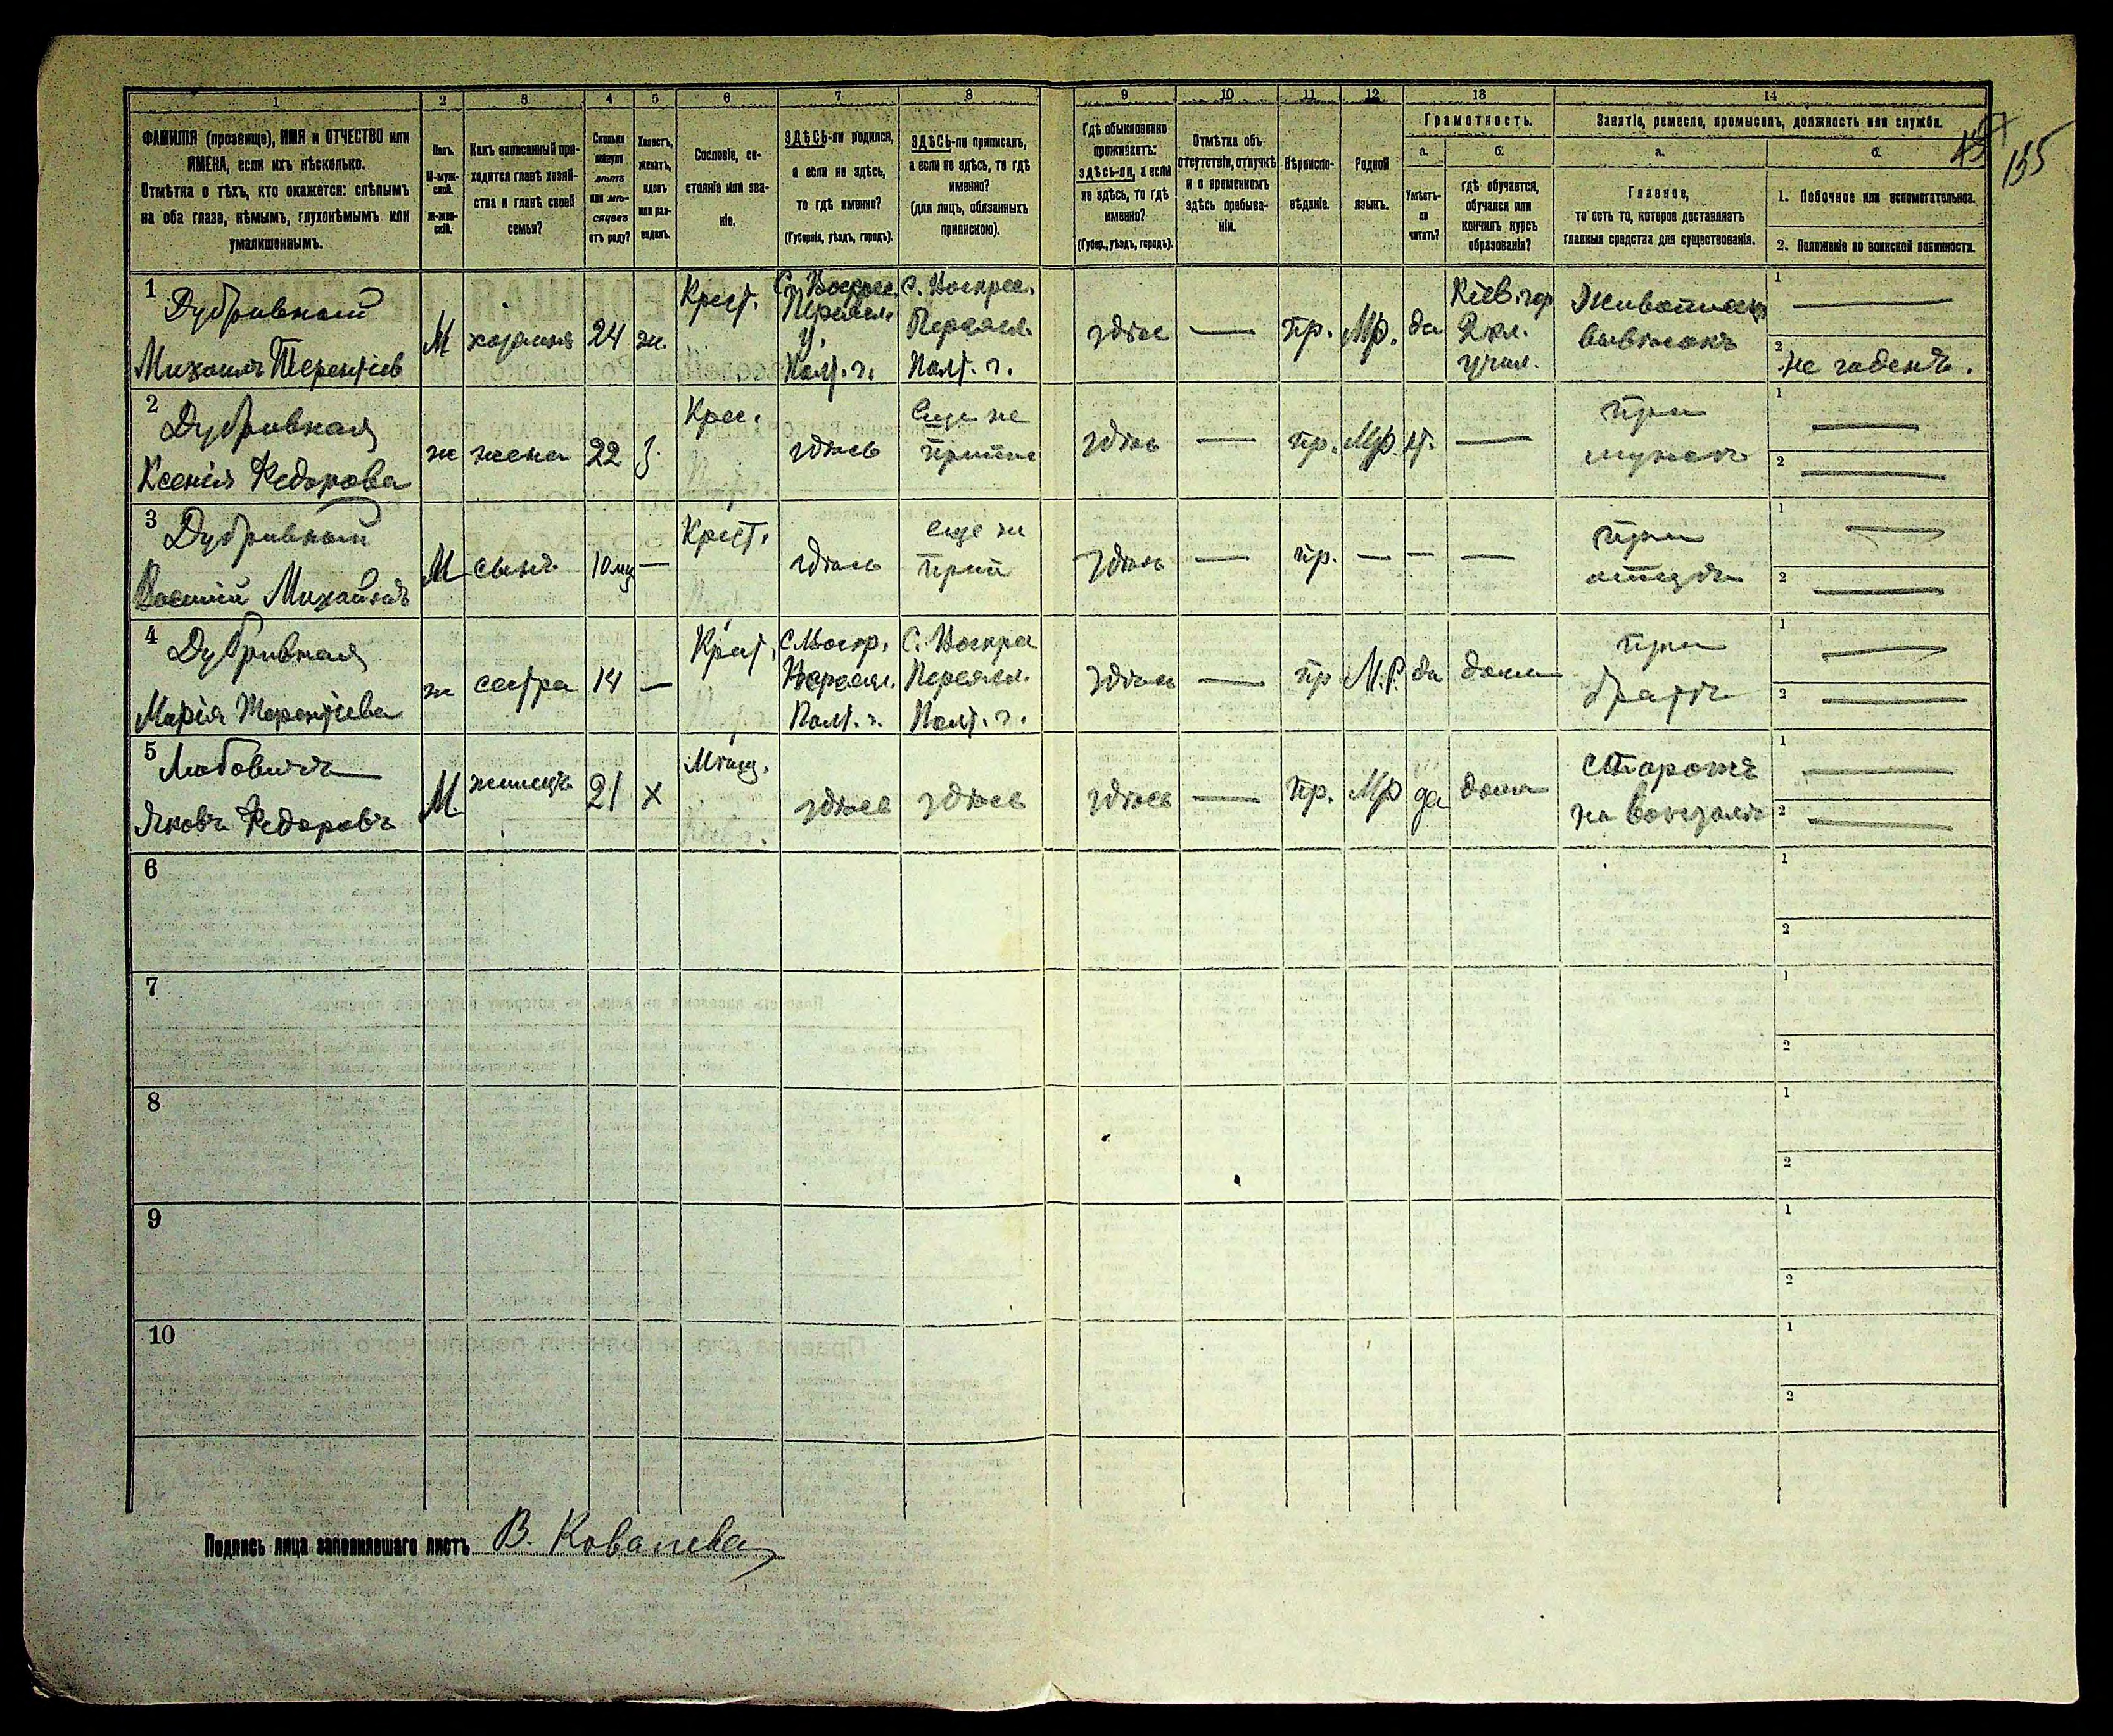 1 2 3 4 5 6 7 8 9 10 11 12 13 14
ФАМИЛІЯ (прозвище), ИМЯ и ОТЧЕСТВО или
ИМЕНА, если ихъ нѣсколько.
Отмѣтка о тѣхъ, кто окажется: слѣпымъ
на оба глаза, нѣмымъ, глухонѣмымъ или
умалишеннымъ.
Полъ.
М-муж-
ской.
Ж-жен-
скій.
Какъ записанный при-
ходится главѣ хозяй-
ства и главѣ своей
семьи?
Сколько
минуло
лѣтъ
или мѣ-
сяцевъ
отъ роду?
Холостъ,
женатъ,
вдовъ
или раз-
веденъ.
Сословіе, со-
стояніе или зва-
ніе.
ЗДѢСЬ-ли родился,
а если не здѣсь,
то гдѣ именно?
(Губернія, уѣздъ, городъ).
ЗДѢСЬ-ли приписанъ,
а если не здѣсь, то гдѣ
именно?
(для лицъ, обязанныхъ
припискою).
Гдѣ обыкновенно
проживаетъ:
здѣсь-ли, а если
не здѣсь, то гдѣ
именно?
(Губер., уѣздъ, городъ).
Отмѣтка объ
отсутствіи, отлучкѣ
и о временномъ
здѣсь пребыва-
ніи.
Вѣроиспо-
вѣданіе.
Родной
языкъ.
Грамотность.
а.
Умѣетъ-
ли
читать?
б.
гдѣ обучается,
обучался или
кончилъ курсъ
образованія?
Занятіе, ремесло, промыселъ, должность или служба.
а.
Главное,
то есть то, которое доставляетъ
главныя средства для существованія.
б.
1. Побочное или вспомогательное.
2. Положеніе по воинской повинности.
155
1 Дубривный
Михаилъ Терентіев
М
хозяинъ
24
ж.
Крест.
С. Воскрес.
Переясл.
у.
Полт. г.
С. Воскрес.
Переясл.
Полт. г.
здѣсь
—
пр.
Мр.
да
Кіев. гор
2 кл.
учил.
Живописец
вывѣсокъ
1 —
2 не годенъ.
2 Дубривная
Ксенія Федорова
ж
жена
22
З.
Крес.
здѣсь
еще не
припис
здѣсь
—
пр.
Мр.
н.
—
при
мужѣ
1 —
2 —
3 Дубривный
Василій Михайловъ
М
сынъ
10 мц
—
Крест.
здѣсь
еще не
припи
здѣсь
—
пр.
—
—
—
при
отцѣ
1 —
2 —
4 Дубривная
Марія Терентіева
ж
сестра
14
—
Крест.
С. Воскр.
Переясл.
Полт. г.
С. Воскрес
Переясл.
Полт. г.
здѣсь
—
пр
М.Р.
да
дома
при
братѣ
1 —
2 —
5 Любовичъ
Яковъ Федоровъ
М
жилецъ
21
х
Мѣщ.
здѣсь
здѣсь
здѣсь
—
пр.
Мр
да
дома
сторожъ
на вокзалѣ
1 —
2 —
6
1
2
7
1
2
8
1
2
9
1
2
10
1
2
Подпись лица заполнившаго листъ В. Ковалева